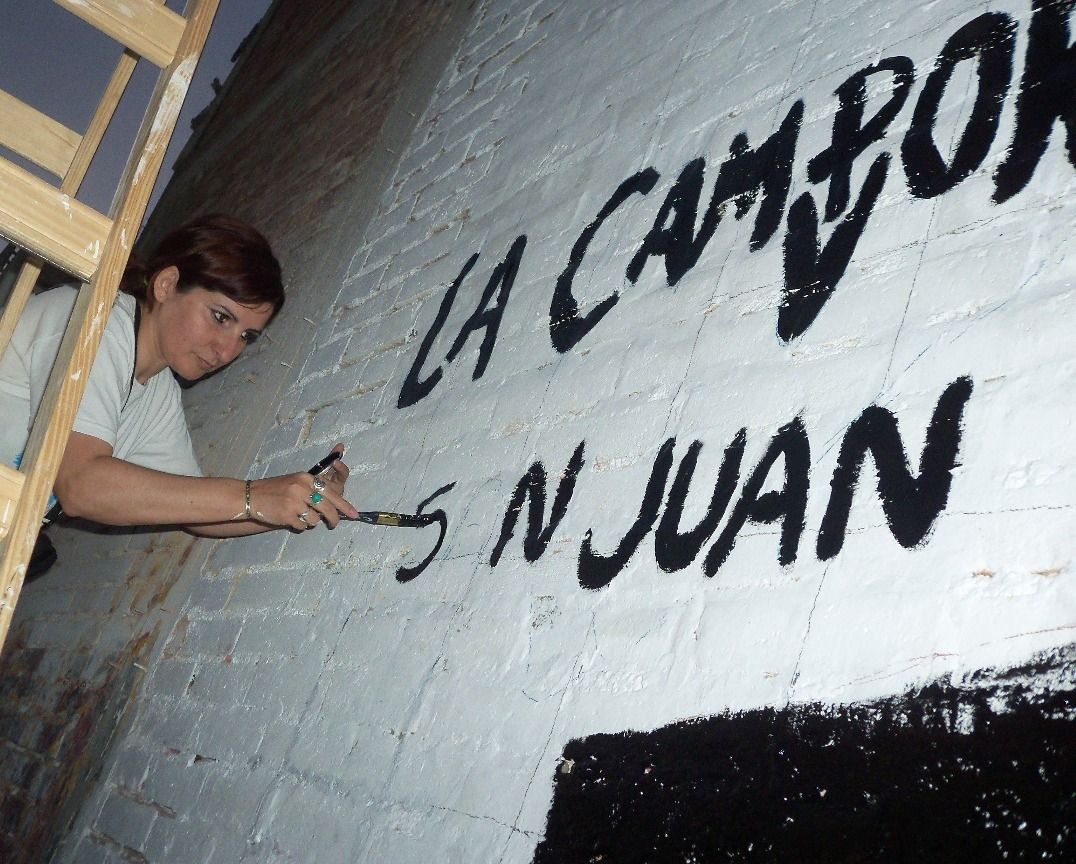 LA CAMPOR
V
S N JUAN